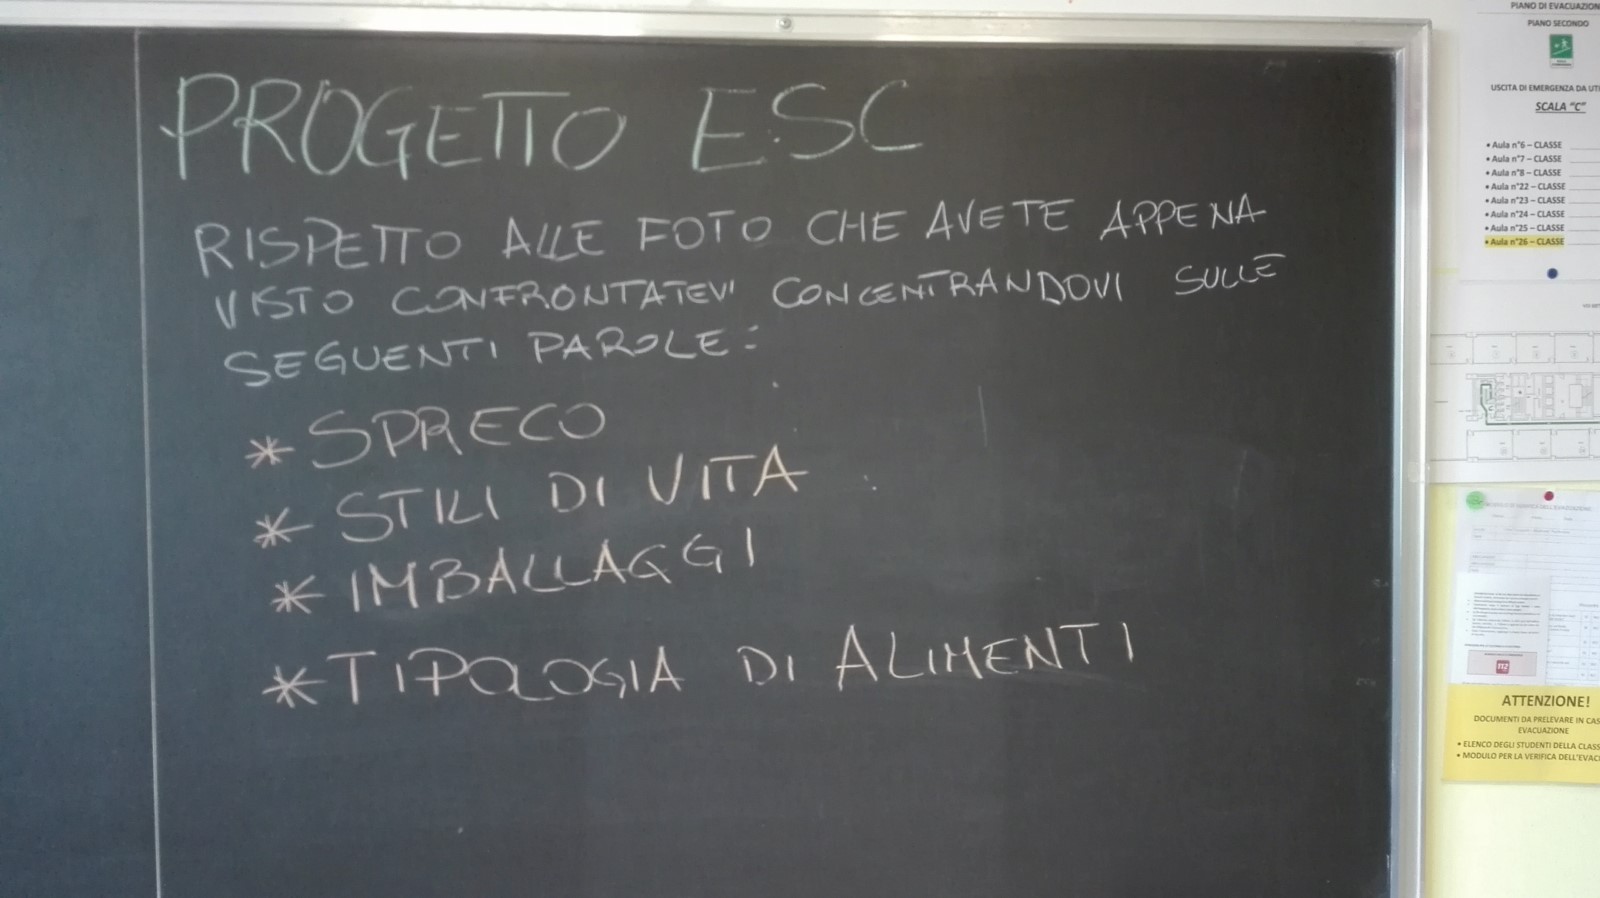 PROGETTO ESC
RISPETTO ALLE FOTO CHE AVETE APPENA
VISTO CONFRONTATEVI CONCENTRANDOVI SULLE
SEGUENTI PAROLE:
* SPRECO
* STILI DI VITA
* IMBALLAGGI
* TIPOLOGIA DI ALIMENTI
PIANO DI EVACUAZION
PIANO SECONDO
USCITA DI EMERGENZA DA UTI
SCALA "C"
• Aula n°6 – CLASSE
• Aula n°7 – CLASSE
• Aula n°8 – CLASSE
• Aula n°22 – CLASSE
• Aula n°23 – CLASSE
• Aula n°24 – CLASSE
• Aula n°25 – CLASSE
• Aula n°26 – CLASSE
112
ATTENZIONE!
DOCUMENTI DA PRELEVARE IN CAS
EVACUAZIONE
• ELENCO DEGLI STUDENTI DELLA CLASS
• MODULO PER LA VERIFICA DELL'EVAC